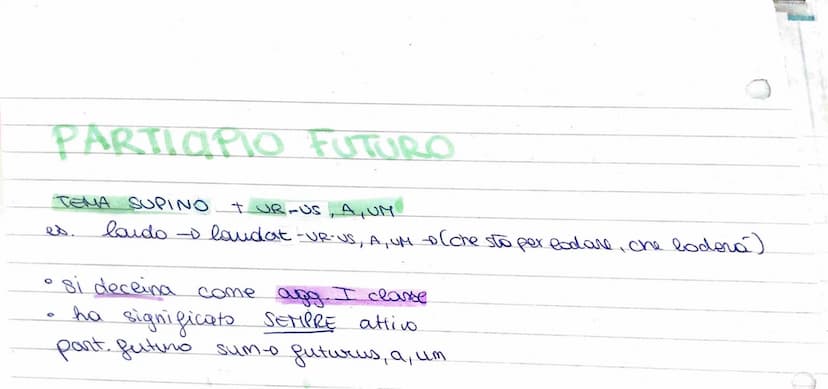 PARTICIPIO FUTURO
TEMA SUPINO + UR-US, A, UM
es. laudo → laudat-UR-US, A, UM → (che sta per lodare, che loderà)
• si declina come agg. I classe
• ha significato SEMPRE attivo
part. futuro sum → futurus, a, um